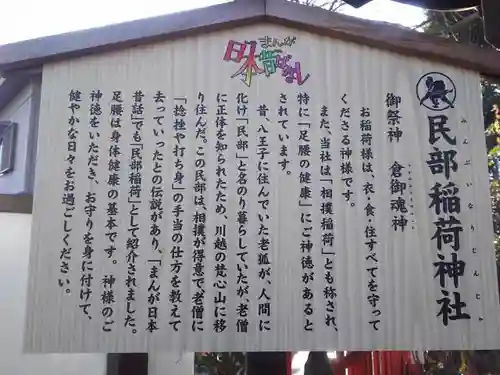 民部稲荷神社
みんぶいなりじんじゃ
御祭神　倉御魂神
お稲荷様は、衣・食・住すべてを守って
くださる神様です。
また、当社は「相撲稲荷」とも称され、
特に「足腰の健康」にご神徳があると
されています。
昔、八王子に住んでいた老狐が、人間に
化け「民部」と名のり暮らしていたが、老僧
に正体を知られたため、川越の梵心山に移
り住んだ。この民部は、相撲が得意で老僧に
「捻挫や打ち身」の手当の仕方を教えて
去っていったとの伝説があり、「まんが日本
昔話」でも「民部稲荷」として紹介されました。
足腰は身体健康の基本です。神様のご
神徳をいただき、お守りを身に付けて、
健やかな日々をお過ごしください。
まんが
日本昔ばなし